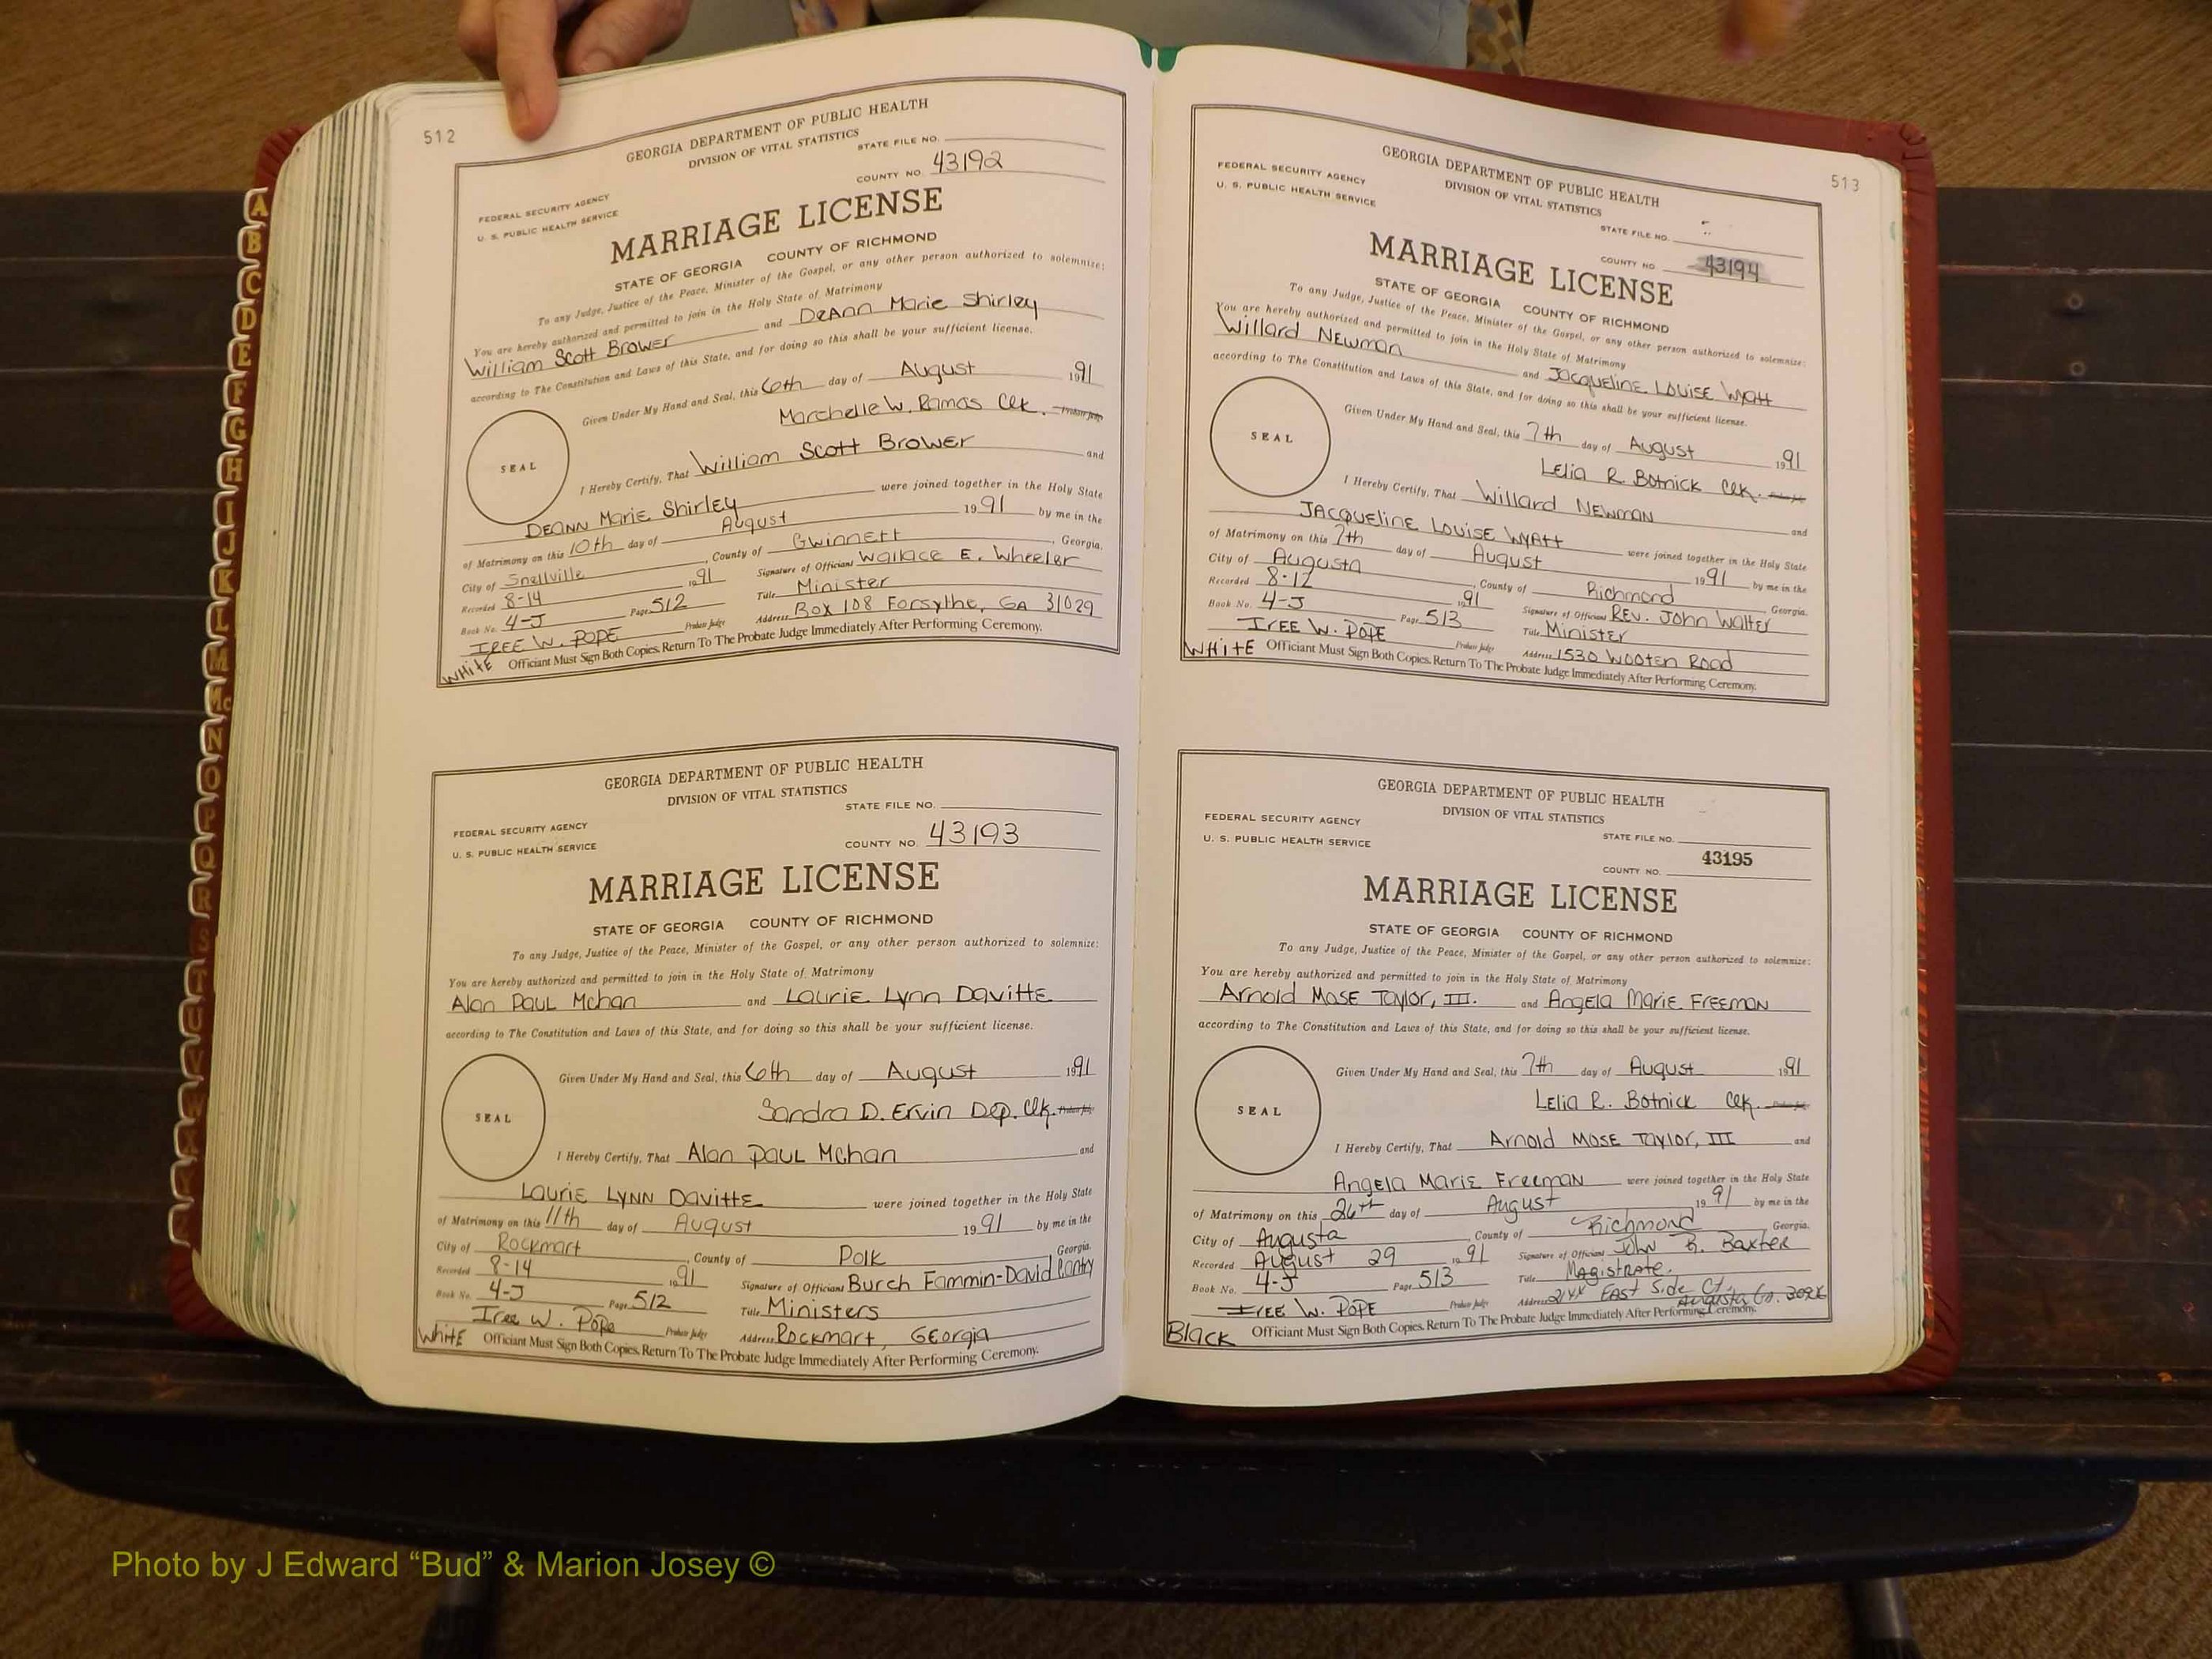 512
GEORGIA DEPARTMENT OF PUBLIC HEALTH
DIVISION OF VITAL STATISTICS
STATE FILE NO.
COUNTY NO. 43192
FEDERAL SECURITY AGENCY
U. S. PUBLIC HEALTH SERVICE
MARRIAGE LICENSE
STATE OF GEORGIA COUNTY OF RICHMOND
To any Judge, Justice of the Peace, Minister of the Gospel, or any other person authorized to solemnize:
You are hereby authorized and permitted to join in the Holy State of Matrimony
William Scott Brower and DeAnn Marie Shirley
according to The Constitution and Laws of this State, and for doing so this shall be your sufficient license.
Given Under My Hand and Seal, this 6th day of August 1991
Marchelle W. Ramos Clk. Probate Judge
SEAL
I Hereby Certify, That William Scott Brower and
DeAnn Marie Shirley were joined together in the Holy State
of Matrimony on this 10th day of August 1991 by me in the
City of Snellville, County of Gwinnett, Georgia.
Recorded 8-14 1991 Signature of Officiant Wallace E. Wheeler
Book No. 4-J Page 512 Title Minister
IREE W. POPE Probate Judge Address Box 108 Forsythe, GA 31029
WHITE Officiant Must Sign Both Copies. Return To The Probate Judge Immediately After Performing Ceremony.
GEORGIA DEPARTMENT OF PUBLIC HEALTH
DIVISION OF VITAL STATISTICS
STATE FILE NO.
FEDERAL SECURITY AGENCY
U. S. PUBLIC HEALTH SERVICE
COUNTY NO. 43193
MARRIAGE LICENSE
STATE OF GEORGIA COUNTY OF RICHMOND
To any Judge, Justice of the Peace, Minister of the Gospel, or any other person authorized to solemnize:
You are hereby authorized and permitted to join in the Holy State of Matrimony
Alan Paul Mchan and Laurie Lynn Davitte
according to The Constitution and Laws of this State, and for doing so this shall be your sufficient license.
Given Under My Hand and Seal, this 6th day of August 1991
Sandra D. Ervin Dep. Clk. Probate Judge
SEAL
I Hereby Certify, That Alan Paul Mchan and
Laurie Lynn Davitte were joined together in the Holy State
of Matrimony on this 11th day of August 1991 by me in the
City of Rockmart, County of Polk Georgia.
Recorded 8-14 1991 Signature of Officiant Burch Fammin-David
Book No. 4-J Page 512 Title Ministers
Iree W. Pope Probate Judge Address Rockmart, Georgia
White Officiant Must Sign Both Copies. Return To The Probate Judge Immediately After Performing Ceremony.
513
GEORGIA DEPARTMENT OF PUBLIC HEALTH
DIVISION OF VITAL STATISTICS
FEDERAL SECURITY AGENCY
U. S. PUBLIC HEALTH SERVICE
STATE FILE NO.
COUNTY NO. 43194
MARRIAGE LICENSE
STATE OF GEORGIA COUNTY OF RICHMOND
To any Judge, Justice of the Peace, Minister of the Gospel, or any other person authorized to solemnize:
You are hereby authorized and permitted to join in the Holy State of Matrimony
Willard Newman and Jacqueline Louise Wyatt
according to The Constitution and Laws of this State, and for doing so this shall be your sufficient license.
Given Under My Hand and Seal, this 7th day of August 1991
Lelia R. Botnick Clk.
SEAL
I Hereby Certify, That Willard Newman and
Jacqueline Louise Wyatt were joined together in the Holy State
of Matrimony on this 7th day of August 1991 by me in the
City of Augusta, County of Richmond Georgia.
Recorded 8-12 1991 Signature of Officiant REV. John Walter
Book No. 4-J Page 513 Title Minister
IREE W. POPE Probate Judge Address 1530 Wooten Road
WHITE Officiant Must Sign Both Copies. Return To The Probate Judge Immediately After Performing Ceremony.
GEORGIA DEPARTMENT OF PUBLIC HEALTH
DIVISION OF VITAL STATISTICS
FEDERAL SECURITY AGENCY
U. S. PUBLIC HEALTH SERVICE
STATE FILE NO.
COUNTY NO. 43195
MARRIAGE LICENSE
STATE OF GEORGIA COUNTY OF RICHMOND
To any Judge, Justice of the Peace, Minister of the Gospel, or any other person authorized to solemnize:
You are hereby authorized and permitted to join in the Holy State of Matrimony
Arnold Mose Taylor, III. and Angela Marie Freeman
according to The Constitution and Laws of this State, and for doing so this shall be your sufficient license.
Given Under My Hand and Seal, this 7th day of August 1991
Lelia R. Botnick Clk.
SEAL
I Hereby Certify, That Arnold Mose Taylor, III and
Angela Marie Freeman were joined together in the Holy State
of Matrimony on this 26th day of August 1991 by me in the
City of Augusta, County of Richmond Georgia.
Recorded August 29 1991 Signature of Officiant John R. Baxter
Book No. 4-J Page 513 Title Magistrate.
IREE W. POPE Probate Judge Address East Side Ct. Augusta Ga.
Black Officiant Must Sign Both Copies. Return To The Probate Judge Immediately After Performing Ceremony.
A
B
C
D
E
F
G
H
I
J
K
L
M
Mc
N
O
P
Q
R
S
T
U
V
W
Photo by J Edward “Bud” & Marion Josey ©